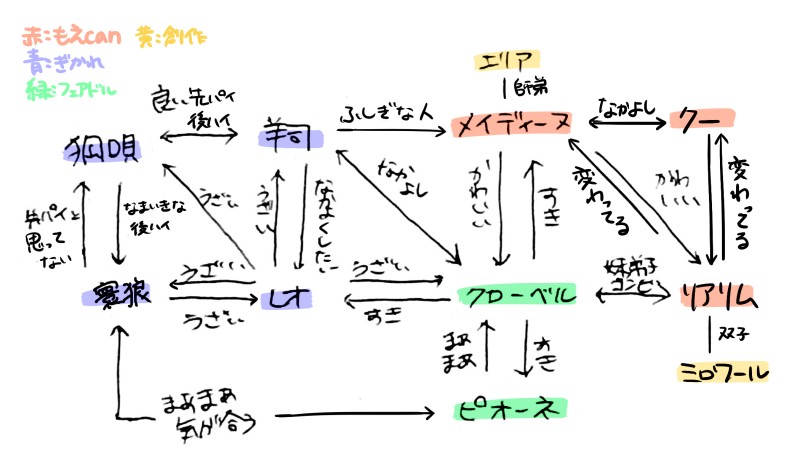 赤:もえcan 黄:創作
青:ぎかれ
緑:フェアドル
エリア
師弟
良い先パイ
後ハイ
ふしぎな人
なかよし
狛唄
羊司
メイディーヌ
クー
先パイと
思って
ない
なまいきな
後ハイ
うざい
うざい
なかよくしたい
なか
よし
かわいい
すき
変わってる
かわ
いい
変わってる
うざい
うざい
妹弟子
コンビ
狼
レオ
クローベル
リアリム
うざい
すき
双子
まあ
まあ
すき
ミロワール
まあまあ
気が合う
ピオーネ